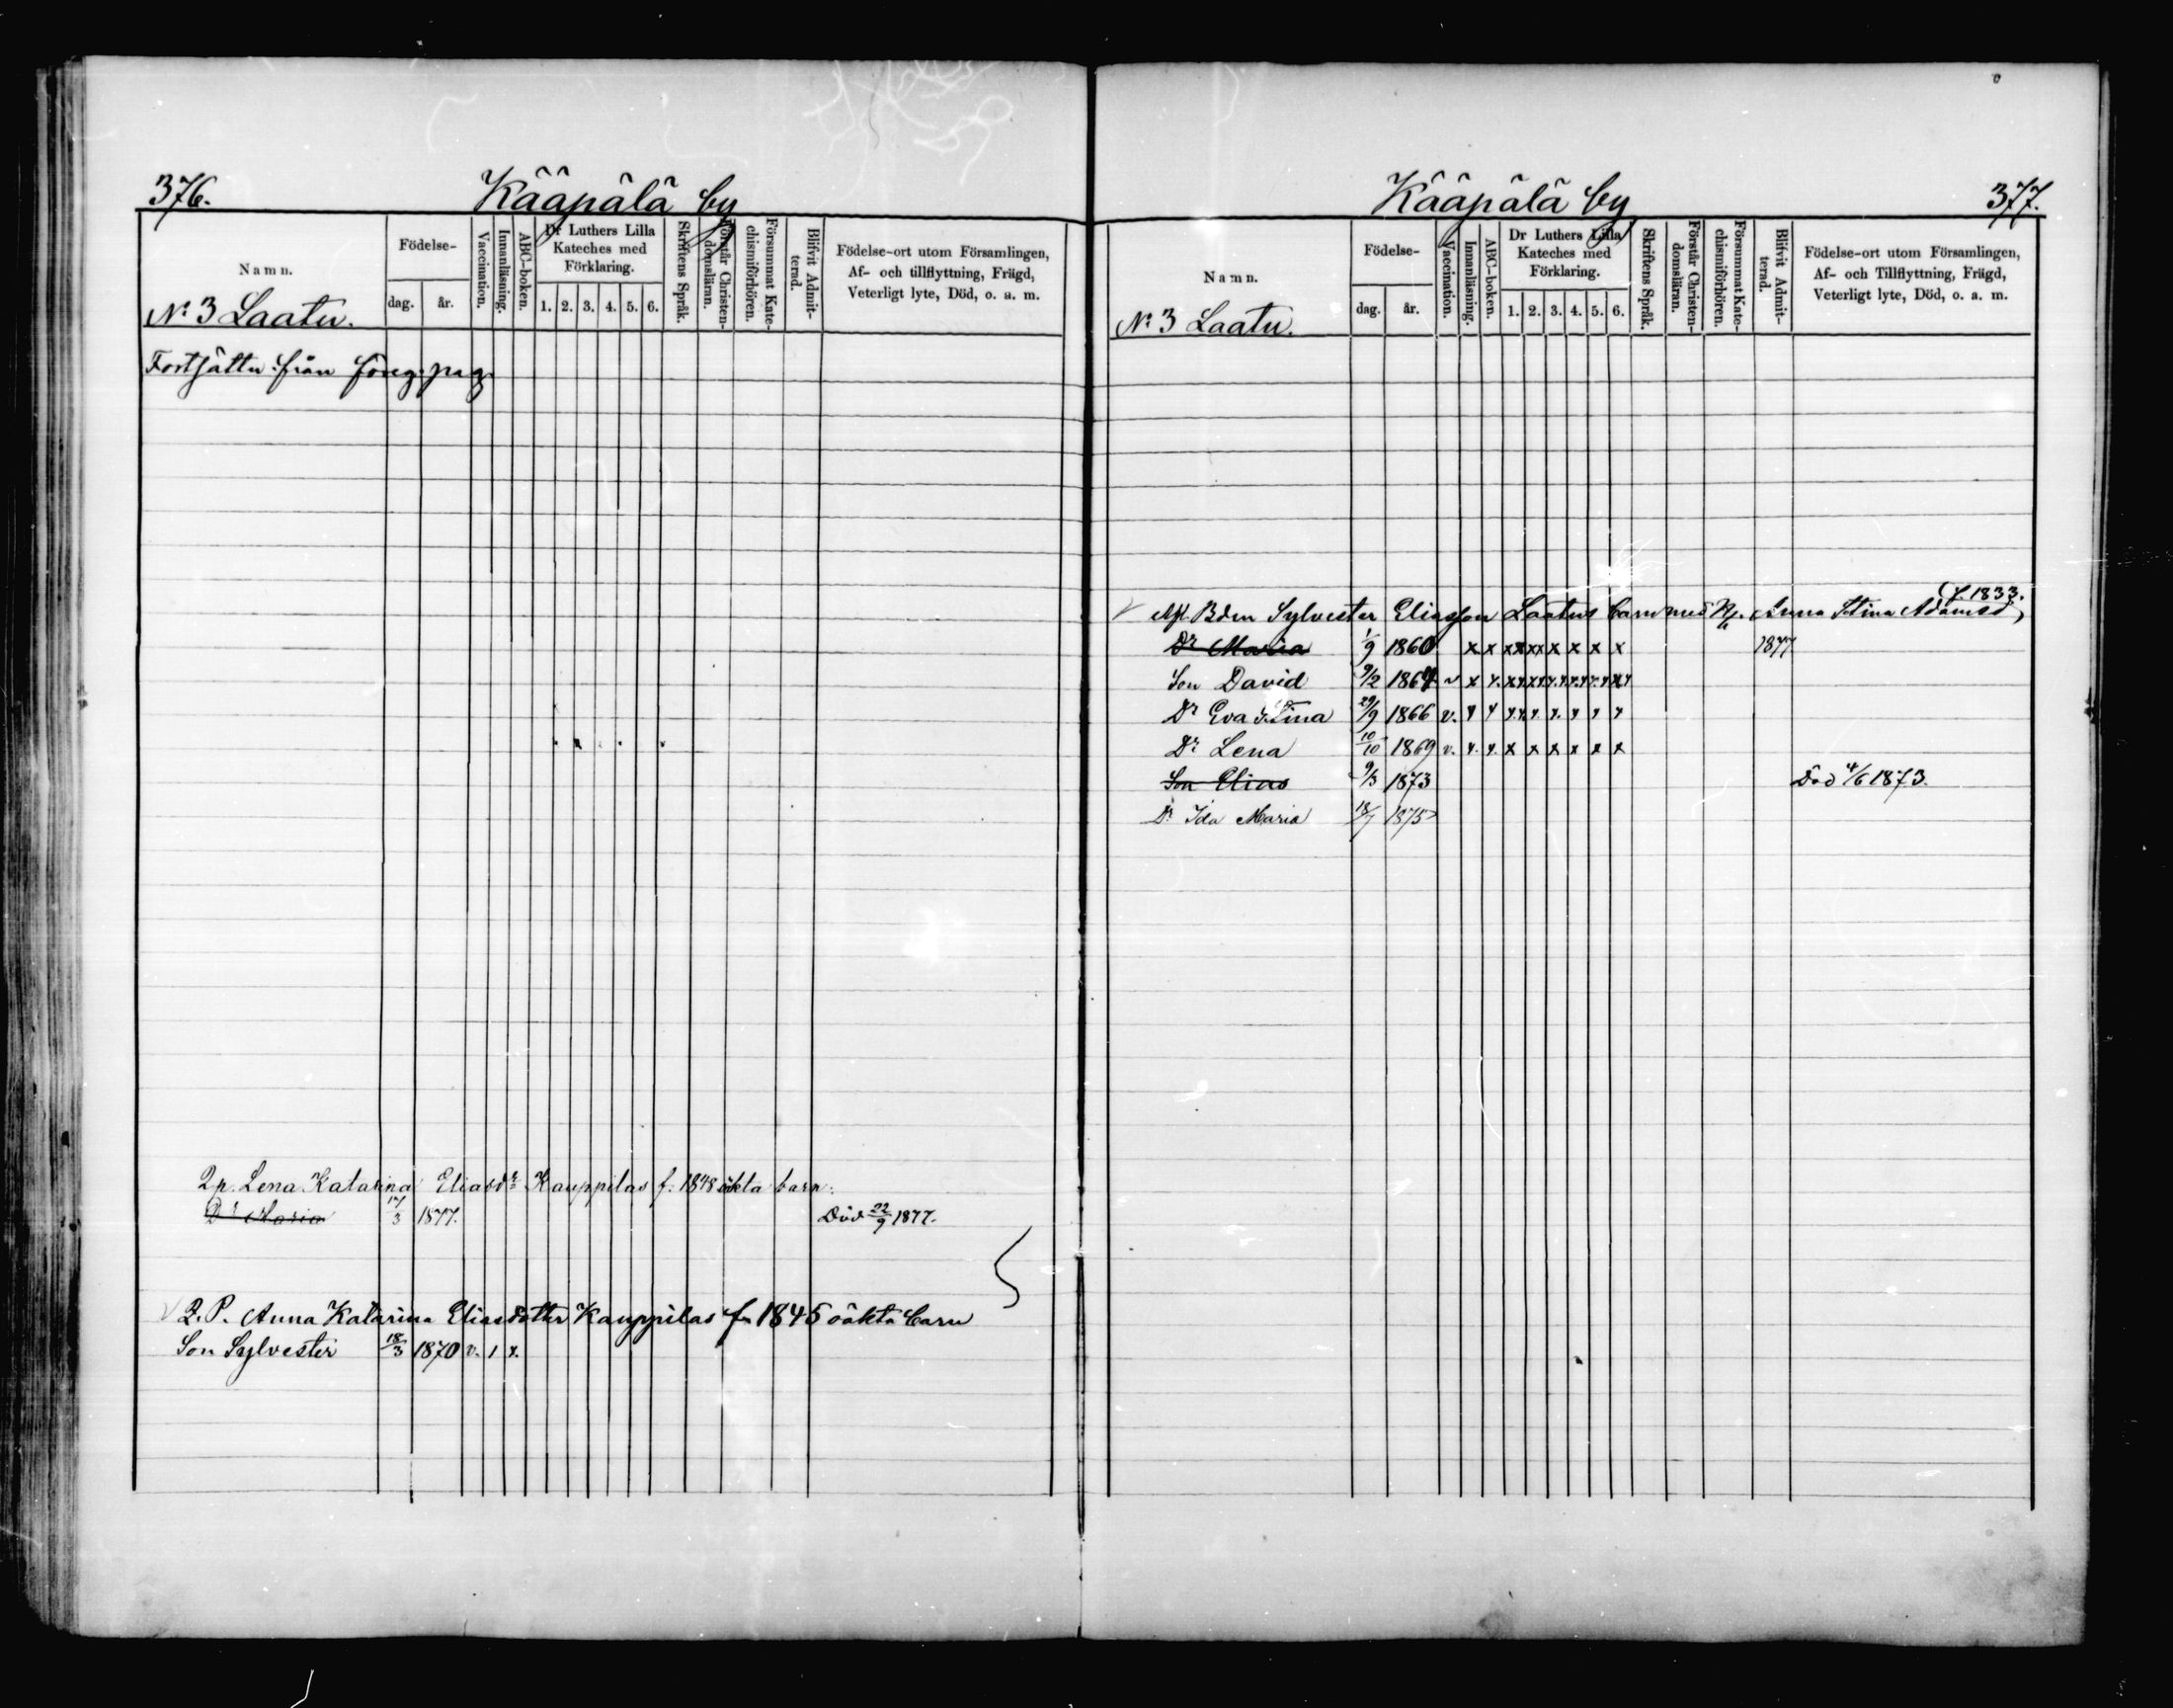 376.
Kääpälä by
Namn.
Födelse-
dag. år.
Vaccination.
Innanläsning.
ABC-boken.
Dr Luthers Lilla
Kateches med
Förklaring.
1. 2. 3. 4. 5. 6.
Skriftens Språk.
Förstår Christen-
domsläran.
Försummat Kate-
chismiförhören.
Blifvit Admit-
terad.
Födelse-ort utom Församlingen,
Af- och tillflyttning, Frägd,
Veterligt lyte, Död, o. a. m.
No 3 Laatu.
Fortsättn. från föreg. pag.
Qp. Lena Katarina Eliasdr Kauppilas f. 1848 oäkta barn:
Dr Maria 17/3 1877. Död 22/9 1877.
Q. P. Anna Katarina Eliasdotter Kauppilas fn 1845 oäkta barn
Son Sylvester 18/3 1870 v. 1 x.
Kääpälä by
377.
Namn.
Födelse-
dag. år.
Vaccination.
Innanläsning.
ABC-boken.
Dr Luthers Lilla
Kateches med
Förklaring.
1. 2. 3. 4. 5. 6.
Skriftens Språk.
Förstår Christen-
domsläran.
Försummat Kate-
chismiförhören.
Blifvit Admit-
terad.
Födelse-ort utom Församlingen,
Af- och Tillflyttning, Frägd,
Veterligt lyte, Död, o. a. m.
No 3 Laatu.
(f 1833.
Bdn Sylvester Eliasson Laatus barn med Anna Stina Adamsd,
Dr Maria 1/9 1860 x x x x x x x x x x 1877
Son David 9/2 1864 v x x. x x x x x x x x x x x x
Dr Eva Stina 29/9 1866 v. x x x x x x. x x x
Dr Lena 10/10 1869 v. x. x. x x x x x x
Son Elias 9/3 1873 Död 4/6 1873.
Dr Ida Maria 18/7 1875